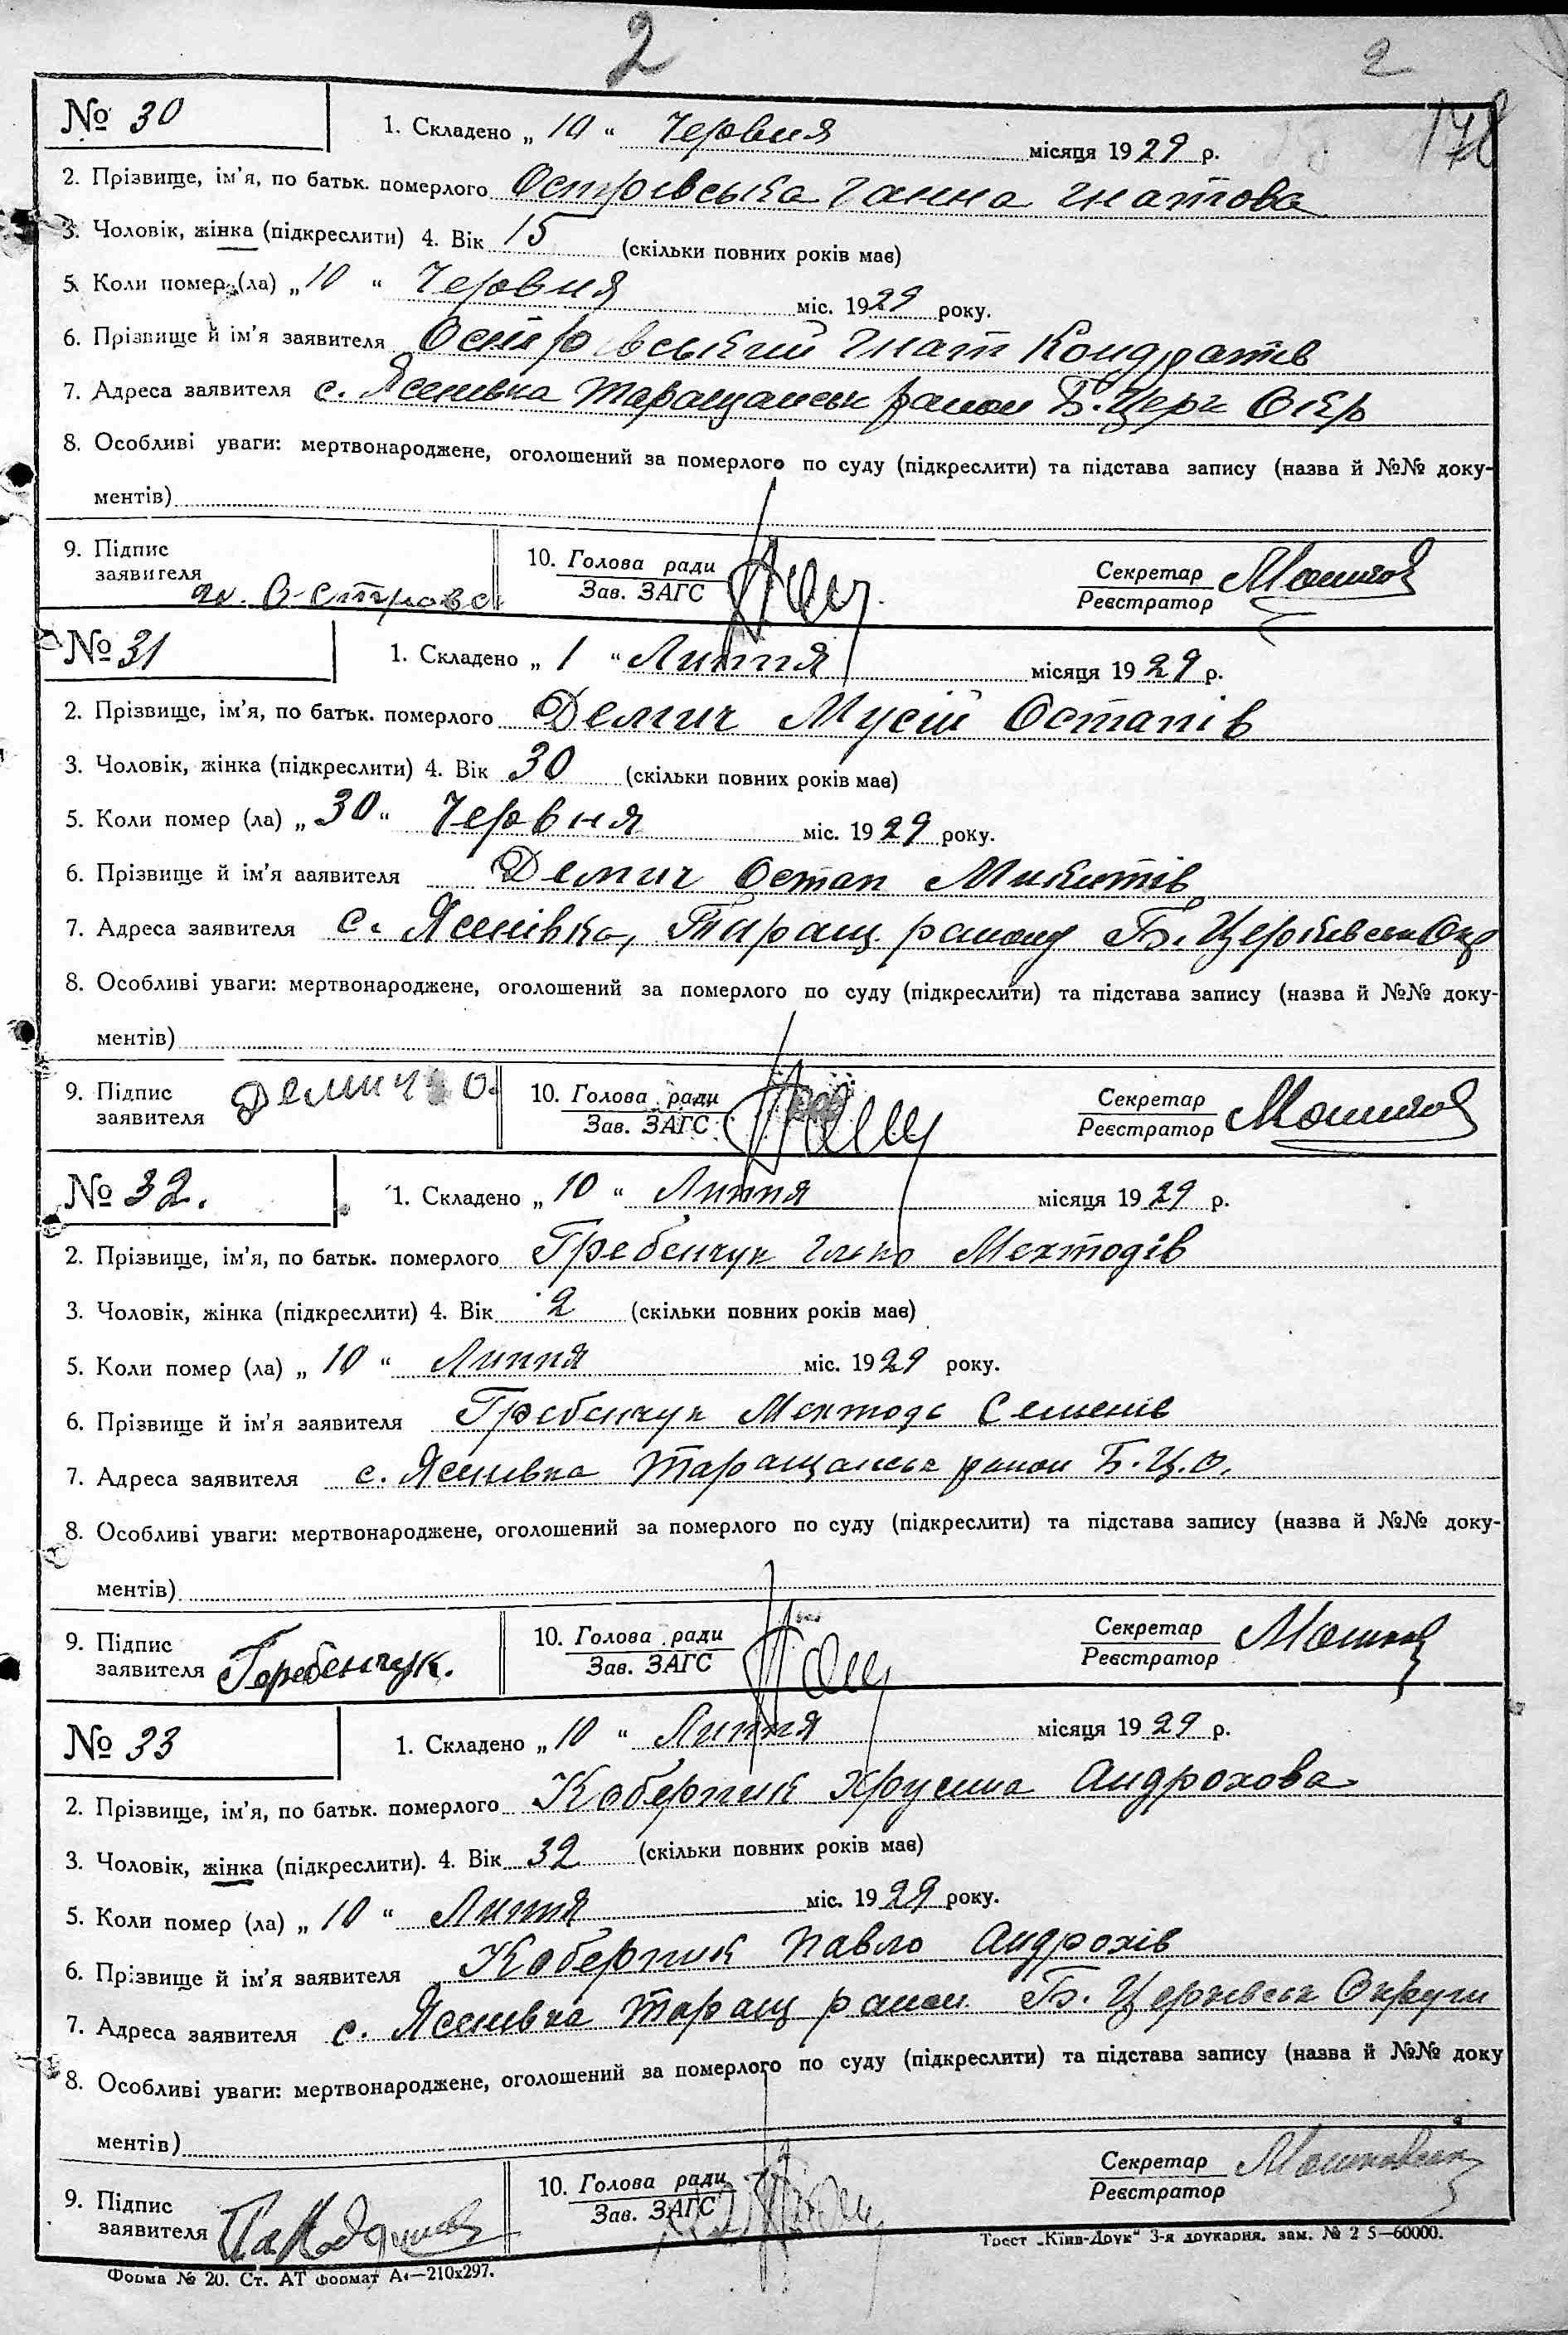 2
2
178
№ 30
1. Складено „ 10 “ Червня місяця 1929 р.
2. Прізвище, ім'я, по батьк. померлого Острівська Ганна Гнатова
3. Чоловік, жінка (підкреслити) 4. Вік 15 (скільки повних років має)
5. Коли помер (ла) „ 10 “ Червня міс. 1929 року.
6. Прізвище й ім'я заявителя Острівський Гнат Кондратів
7. Адреса заявителя с. Ясенівка Таращанськ район Б. Церк Окр
8. Особливі уваги: мертвонароджене, оголошений за померлого по суду (підкреслити) та підстава запису (назва й №№ доку-
ментів)
9. Підпис
заявителя
10. Голова ради
Зав. ЗАГС
Секретар
Реєстратор
№ 31
1. Складено „ 1 “ Липня місяця 1929 р.
2. Прізвище, ім'я, по батьк. померлого Демич Мусій Остапів
3. Чоловік, жінка (підкреслити) 4. Вік 30 (скільки повних років має)
5. Коли помер (ла) „ 30 “ Червня міс. 1929 року.
6. Прізвище й ім'я заявителя Демич Остап Микитів
7. Адреса заявителя с. Ясенівка, Таращ. району Б. Церківськ Окр
8. Особливі уваги: мертвонароджене, оголошений за померлого по суду (підкреслити) та підстава запису (назва й №№ доку-
ментів)
9. Підпис
заявителя Демич О.
10. Голова ради
Зав. ЗАГС
Секретар
Реєстратор
№ 32.
1. Складено „ 10 “ Липня місяця 1929 р.
2. Прізвище, ім'я, по батьк. померлого Гребенчук Мехтодів
3. Чоловік, жінка (підкреслити) 4. Вік 2 (скільки повних років має)
5. Коли помер (ла) „ 10 “ Липня міс. 1929 року.
6. Прізвище й ім'я заявителя Гребенчук Мехтодь Семенів
7. Адреса заявителя с. Ясенівка Таращанськ район Б. Ц. О.
8. Особливі уваги: мертвонароджене, оголошений за померлого по суду (підкреслити) та підстава запису (назва й №№ доку-
ментів)
9. Підпис
заявителя Гербенчук.
10. Голова ради
Зав. ЗАГС
Секретар
Реєстратор
№ 33
1. Складено „ 10 “ Липня місяця 1929 р.
2. Прізвище, ім'я, по батьк. померлого Коберник Хрусина Андрохова
3. Чоловік, жінка (підкреслити). 4. Вік 32 (скільки повних років має)
5. Коли помер (ла) „ 10 “ Липня міс. 1929 року.
6. Прізвище й ім'я заявителя Коберник Павло Андрохів
7. Адреса заявителя с. Ясенівка Таращ район Б. Церківськ Округи
8. Особливі уваги: мертвонароджене, оголошений за померлого по суду (підкреслити) та підстава запису (назва й №№ доку
ментів)
9. Підпис
заявителя
10. Голова ради
Зав. ЗАГС
Секретар
Реєстратор
Форма № 20. Ст. АТ Формат А4—210х297.
Трест „Київ-Друк“ 3-я друкарня, зам. № 2 5—60000.